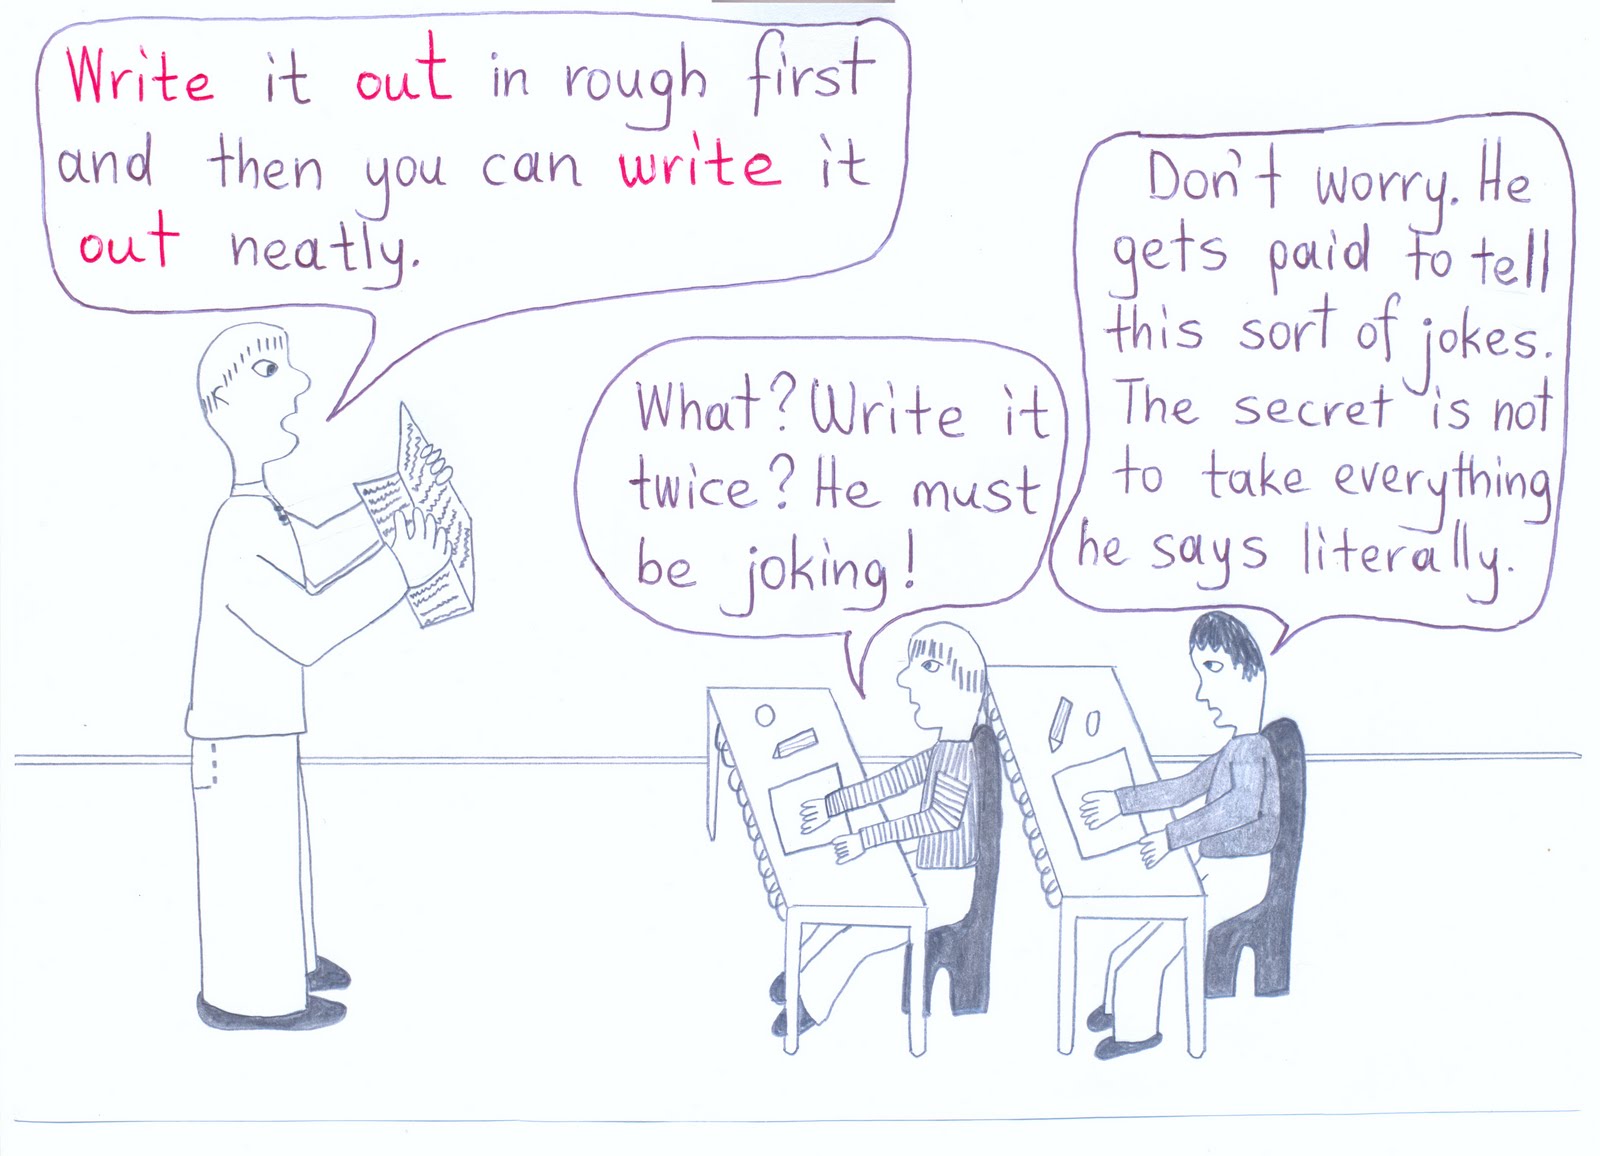 Write it out in rough first
and then you can write it
out neatly.
What? Write it
twice? He must
be joking!
Don't worry. He
gets paid to tell
this sort of jokes.
The secret is not
to take everything
he says literally.